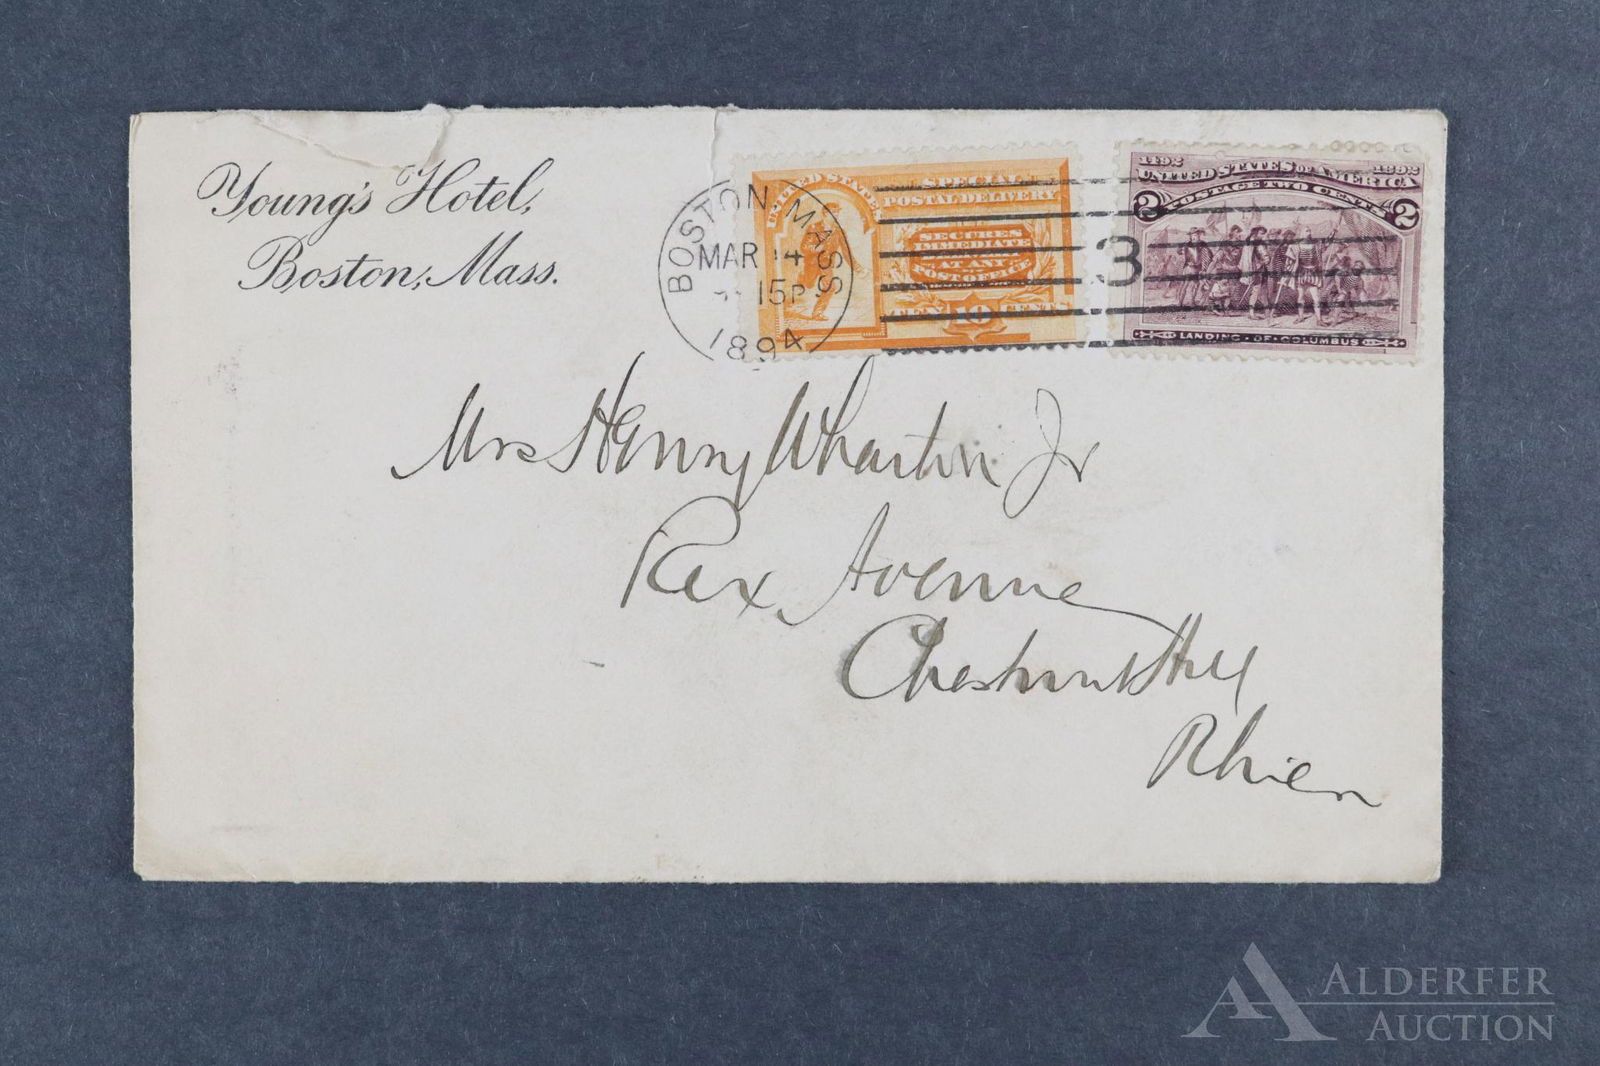 Young's Hotel,
Boston, Mass.
BOSTON, MASS.
MAR 14
15P
1894
3
UNITED STATES
SPECIAL
POSTAL DELIVERY
SECURES
IMMEDIATE
AT ANY
POST OFFICE
TEN 10 CENTS
1492 1892
UNITED STATES OF AMERICA
POSTAGE TWO CENTS
2 2
LANDING · OF · COLUMBUS
Mrs Henry Wharton Jr
Rex Avenue
Chestnut Hill
ALDERFER
AUCTION